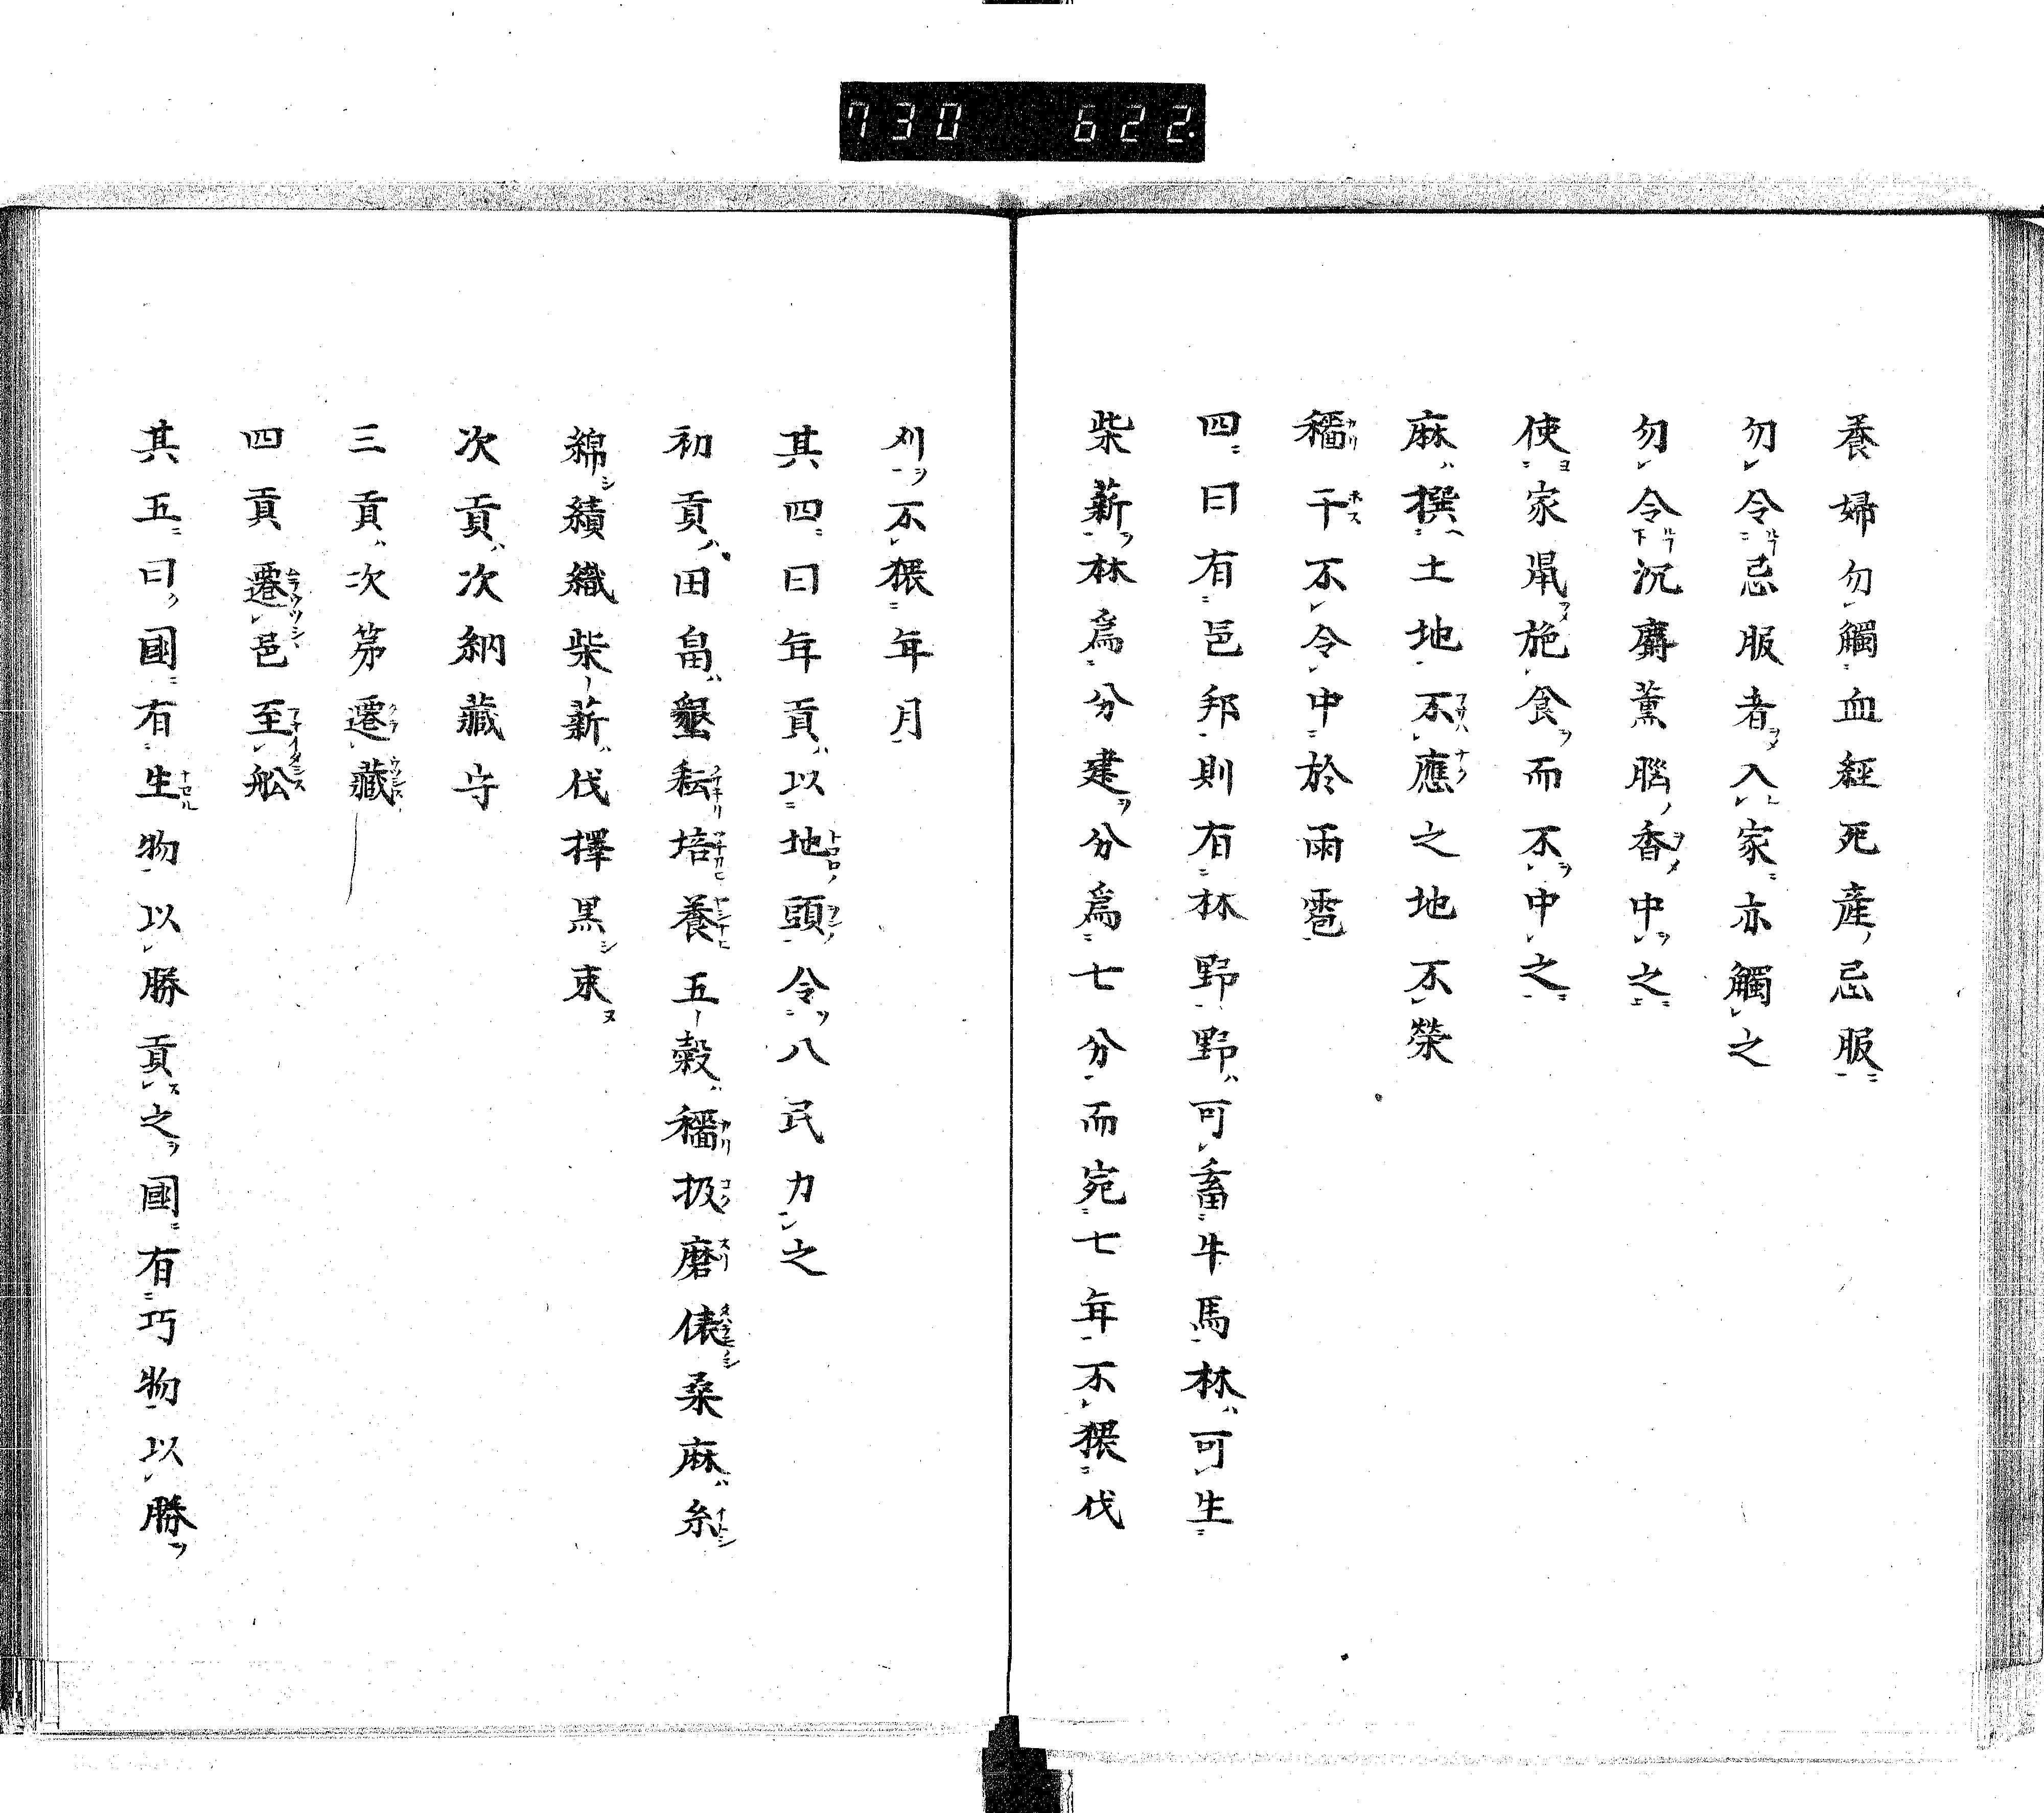 730 622.
養婦勿觸血經死産忌服
勿令忌服者入家亦觸之
勿令沉麝薫腦香中之
使家鼡施食而不中之
麻撰土地不應之地不榮
穡干不令中於雨雹
四曰有邑邦則有林野野可畜牛馬林可生
柴薪林爲分建分爲七分而宛七年不猥伐
刈不猥年月
其四曰年貢以地頭令八民力之
初貢田畠墾耘培養五穀穡扱磨俵桑麻糸
綿績織柴薪伐擇黒束
次貢次納藏守
三貢次第遷藏
四貢遷邑至舩
其五曰國有生物以勝貢之國有巧物以勝